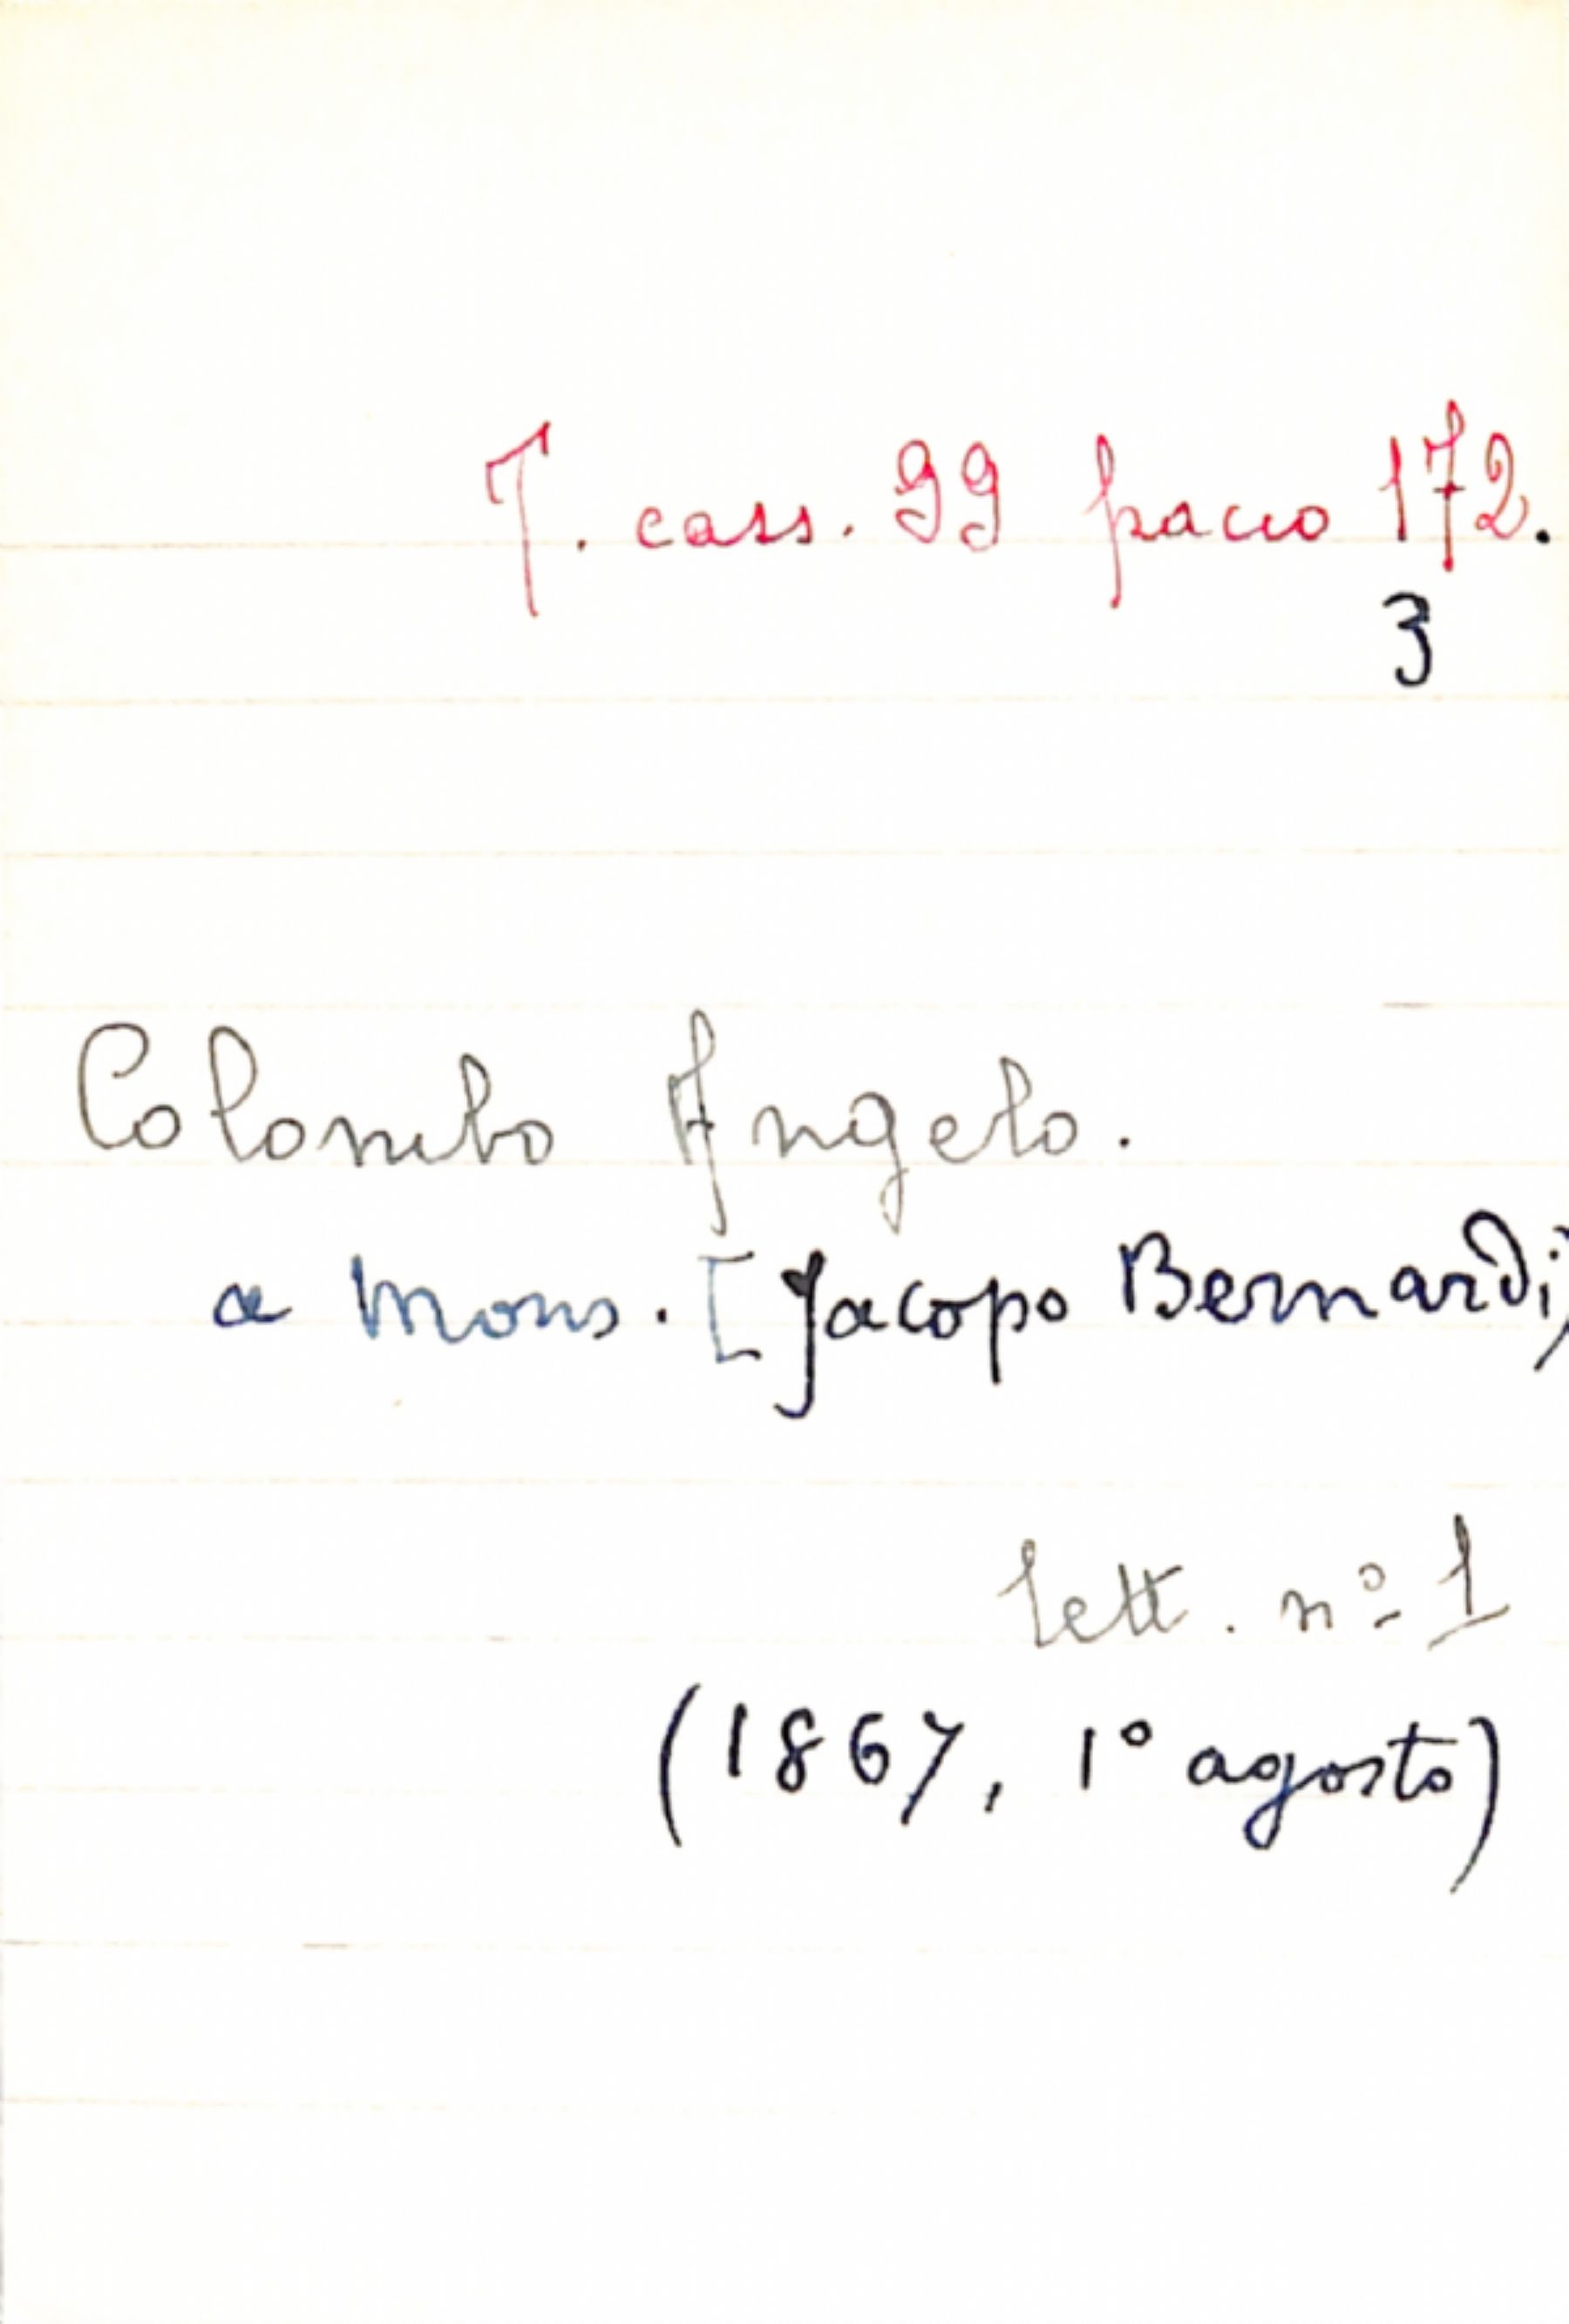 T. cass. 99 pacco 172.
3
Colombo Angelo.
a Mons. [Jacopo Bernardi]
lett. nº 1
(1867, 1º agosto)